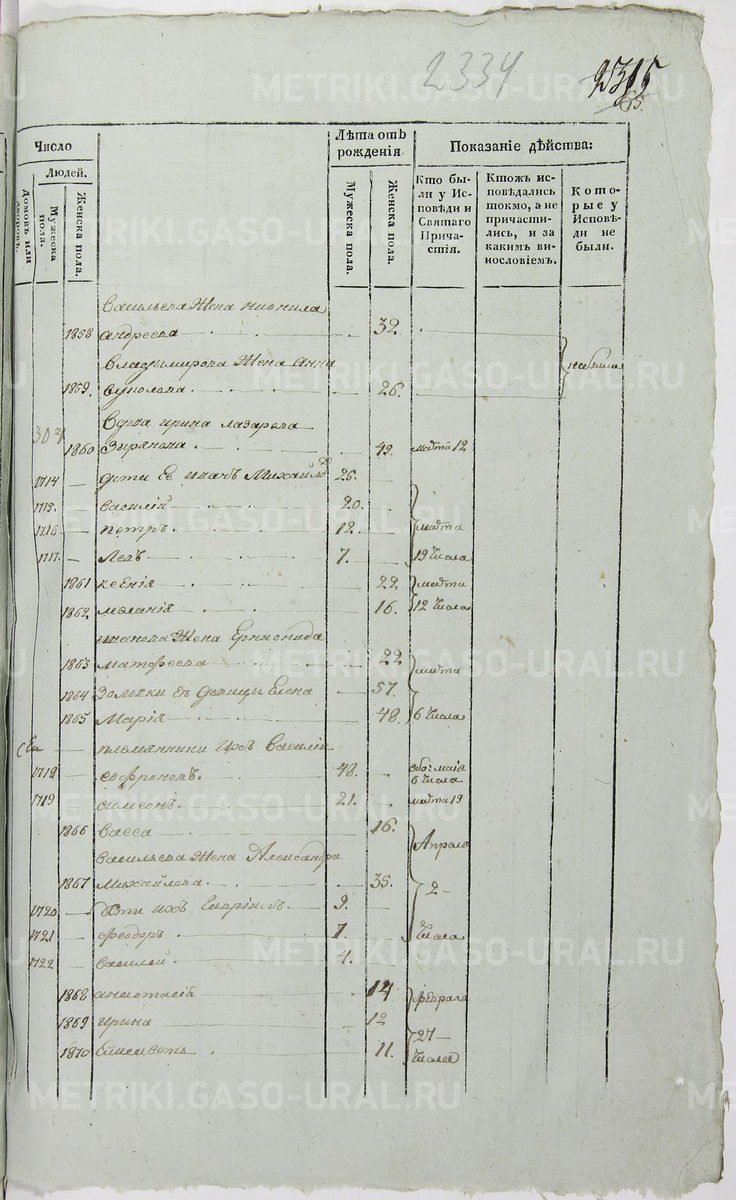 2334
2315
65.
Число
Лѣта отъ рожденія
Показаніе дѣйства:
Людей.
Домовъ или дворовъ.
Мужеска пола.
Женска пола.
Мужеска пола.
Женска пола.
Кто были у Исповѣди и Святаго Причастія.
Ктожъ исповѣдались токмо, а не причастились, и за какимъ винословіемъ.
Которые у Исповѣди не были.
васильева Жена
1858 андреева 32.
владимирова Жена Анна
1859. 26. небыла
304 вдова ирина лазарева
1860 Зирянова 49. марта 12
1714 дети Ея иванъ Михайло 26.
1715. василій 20.
1716 петръ. 12. марта
1717. Левъ 7. 19 числа
1861 ксенія 22 марта
1862 меланія 16. 12 числа
иванова Жена
1863 матфеева 22 марта
1864 Золовки ея девицы Елена 57.
1865 Марія 48. 6 числа
племянники ихъ василій
1718 софроновъ. 48. 6 числа
1719 симеонъ. 21. марта 19
1866 васса 16. Апреля
васильева Жена Александра
1867 Михайлова. 35. 2
1720 дети ихъ Гавріилъ 9.
1721 федоръ 7. числа
1722 василей. 4.
1868 анастасія 14 февраля
1869 ирина 12 27
1870 Елисаветъ 11. числа
METRIKI.GASO-URAL.RU